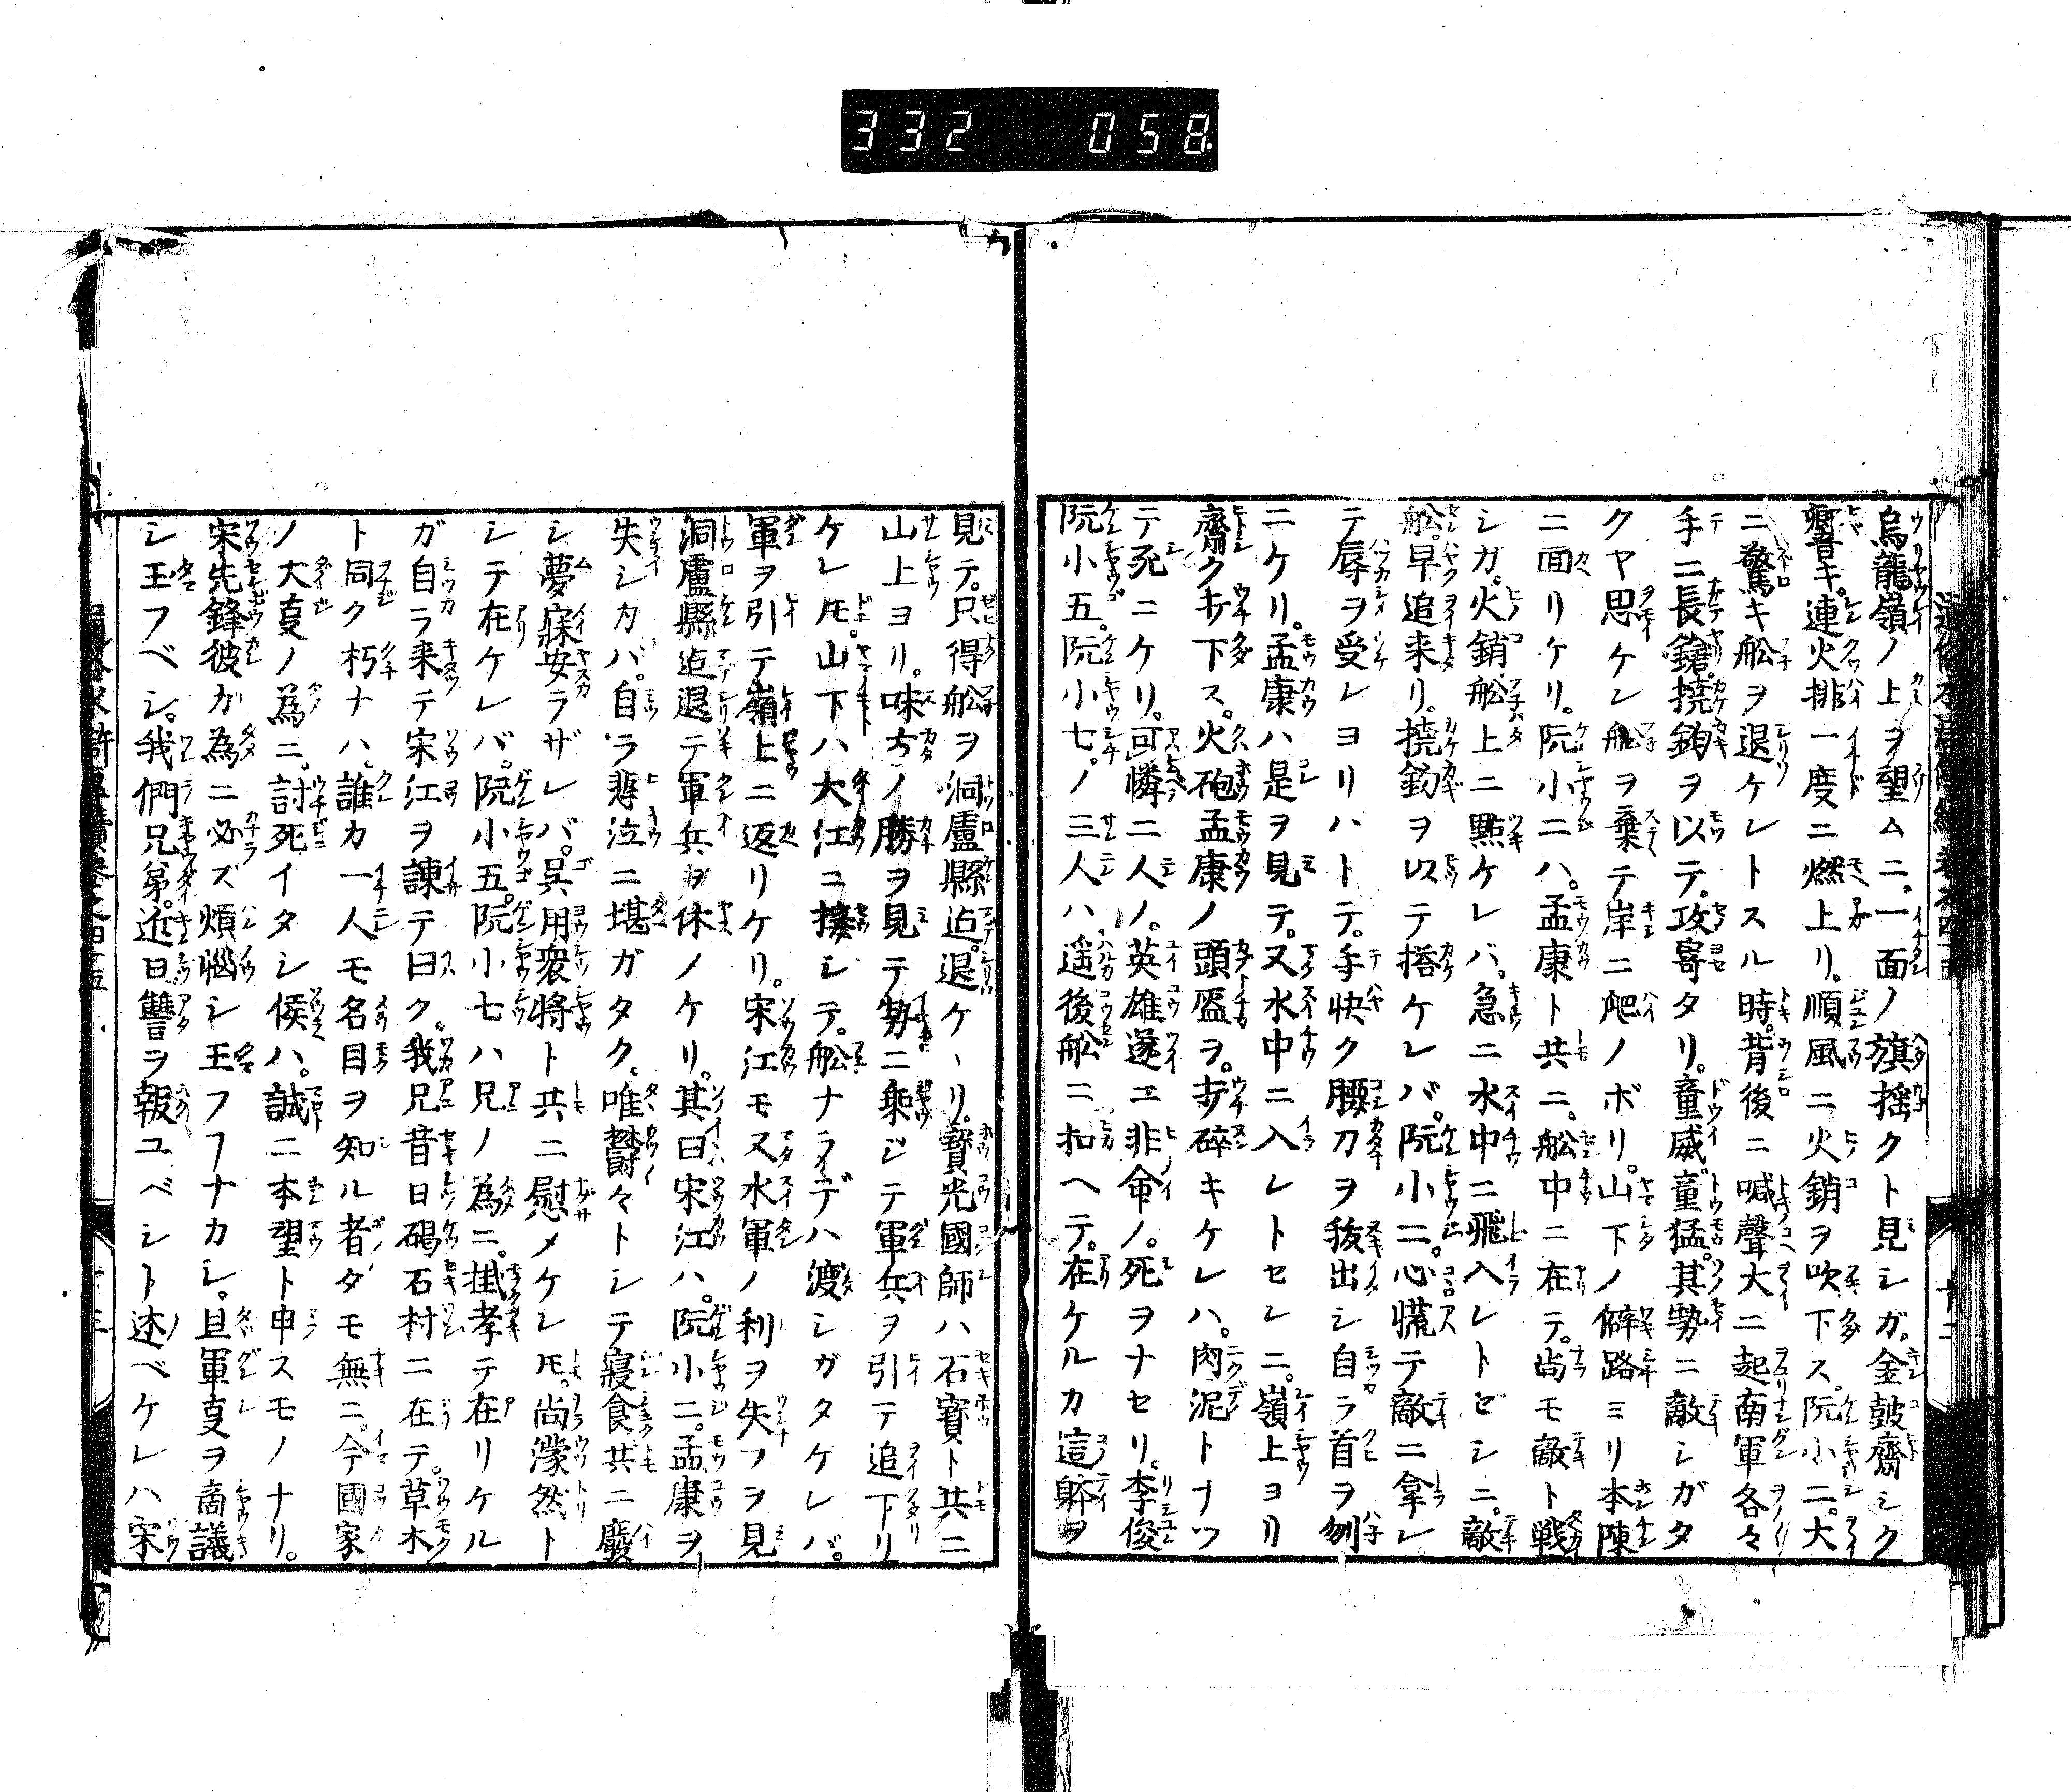 332 058
烏龍嶺ノ上ヲ望ムニ。一面ノ旗揺クト見シガ。金鼓齊シク
響キ。連火排一度ニ燃上リ。順風ニ火銷ヲ吹下ス。阮小二。大
ニ驚キ舩ヲ退ケレトスル時。背後ニ喊聲大ニ起南軍各々
手ニ長鎗。撓鉤ヲ以テ。攻寄タリ。童威童猛。其勢ニ敵シガタ
クヤ思ケレ舩ヲ棄テ岸ニ爬ノボリ。山下ノ僻路ミリ本陳
ニ面リケリ。阮小二ハ。孟康ト共ニ。舩中ニ在テ。尚モ敵ト戦
シガ。火銷舩上ニ點ケレバ。急ニ水中ニ飛入レトセシニ。敵
舩。早追来リ。撓鈎ヲ以テ搭ケレバ。阮小二。心慌テ敵ニ拿レ
テ辱ヲ受レヨリハトテ。手快ク腰刀ヲ拔出シ自ラ首ヲ刎
ニケリ。孟康ハ是ヲ見テ。又水中ニ入レトセレニ。嶺上ヨリ
齊ク打下ス。火砲孟康ノ頭盔ヲ。打碎キケレハ。肉泥トナツ
テ死ニケリ。可憐二人ノ。英雄遂ニ非命ノ。死ヲナセリ。李俊
阮小五。阮小七。ノ三人ハ。遥後舩ニ扣ヘテ。在ケルカ這躰ヲ
見テ。只得舩ヲ洞盧縣迠。退ケヽリ。寳光國師ハ石寳ト共ニ
山上ヨリ。味方ノ勝ヲ見テ勢ニ乗ジテ軍兵ヲ引テ追下リ
ケレ𪜈。山下ハ大江ニ接シテ。舩ナラデハ渡シガタケレバ。
軍ヲ引テ嶺上ニ返リケリ。宋江モ又水軍ノ利ヲ失フヲ見
洞盧縣迠退テ軍兵ヲ休ノケリ。其曰宋江ハ。阮小二。孟康ヲ
失シカバ。自ラ悲泣ニ堪ガタク。唯欝々トシテ寝食共ニ廢
シ夢寐安ラザレバ。呉用衆將ト共ニ慰メケレ𪜈。尚濛然ト
シテ在ケレバ。阮小五。阮小七ハ兄ノ為ニ。掛孝テ在リケル
ガ自ラ来テ宋江ヲ諌テ曰ク。我兄昔日碣石村ニ在テ。草木
ト同ク朽ナハ。誰カ一人モ名目ヲ知ル者ダモ無ニ。今國家
ノ大叓ノ為ニ。討死イタシ候ハ。誠ニ本望ト申スモノナリ。
宋先鋒彼ガ為ニ必ズ煩惱シ玉フヿナカレ。且軍叓ヲ商議
シ玉フベシ。我們兄弟。近日讐ヲ報ユベシト述ベケレハ宋